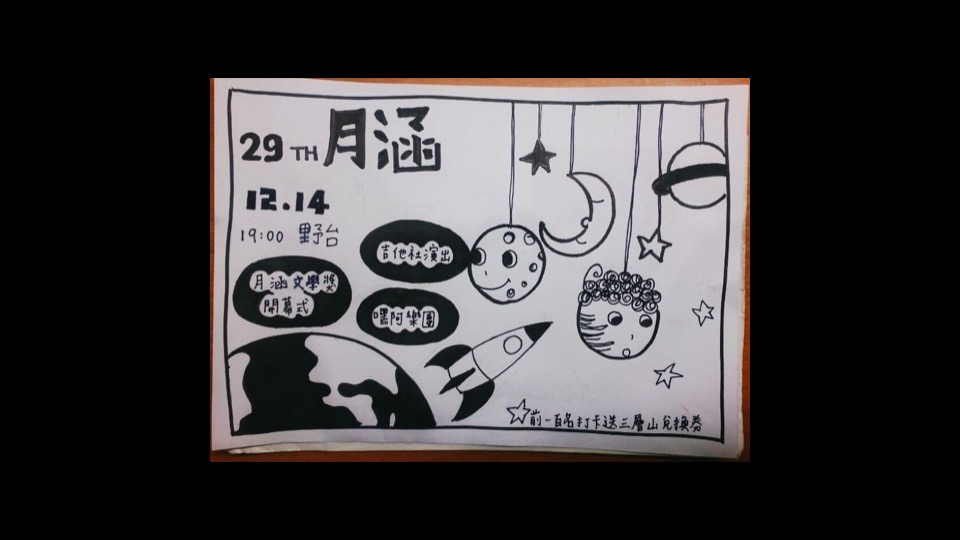 29TH 月涵
12.14
19:00 野台
吉他社演出
月涵文學獎
開幕式
嘿阿樂團
前一百名打卡送三層山兌換券